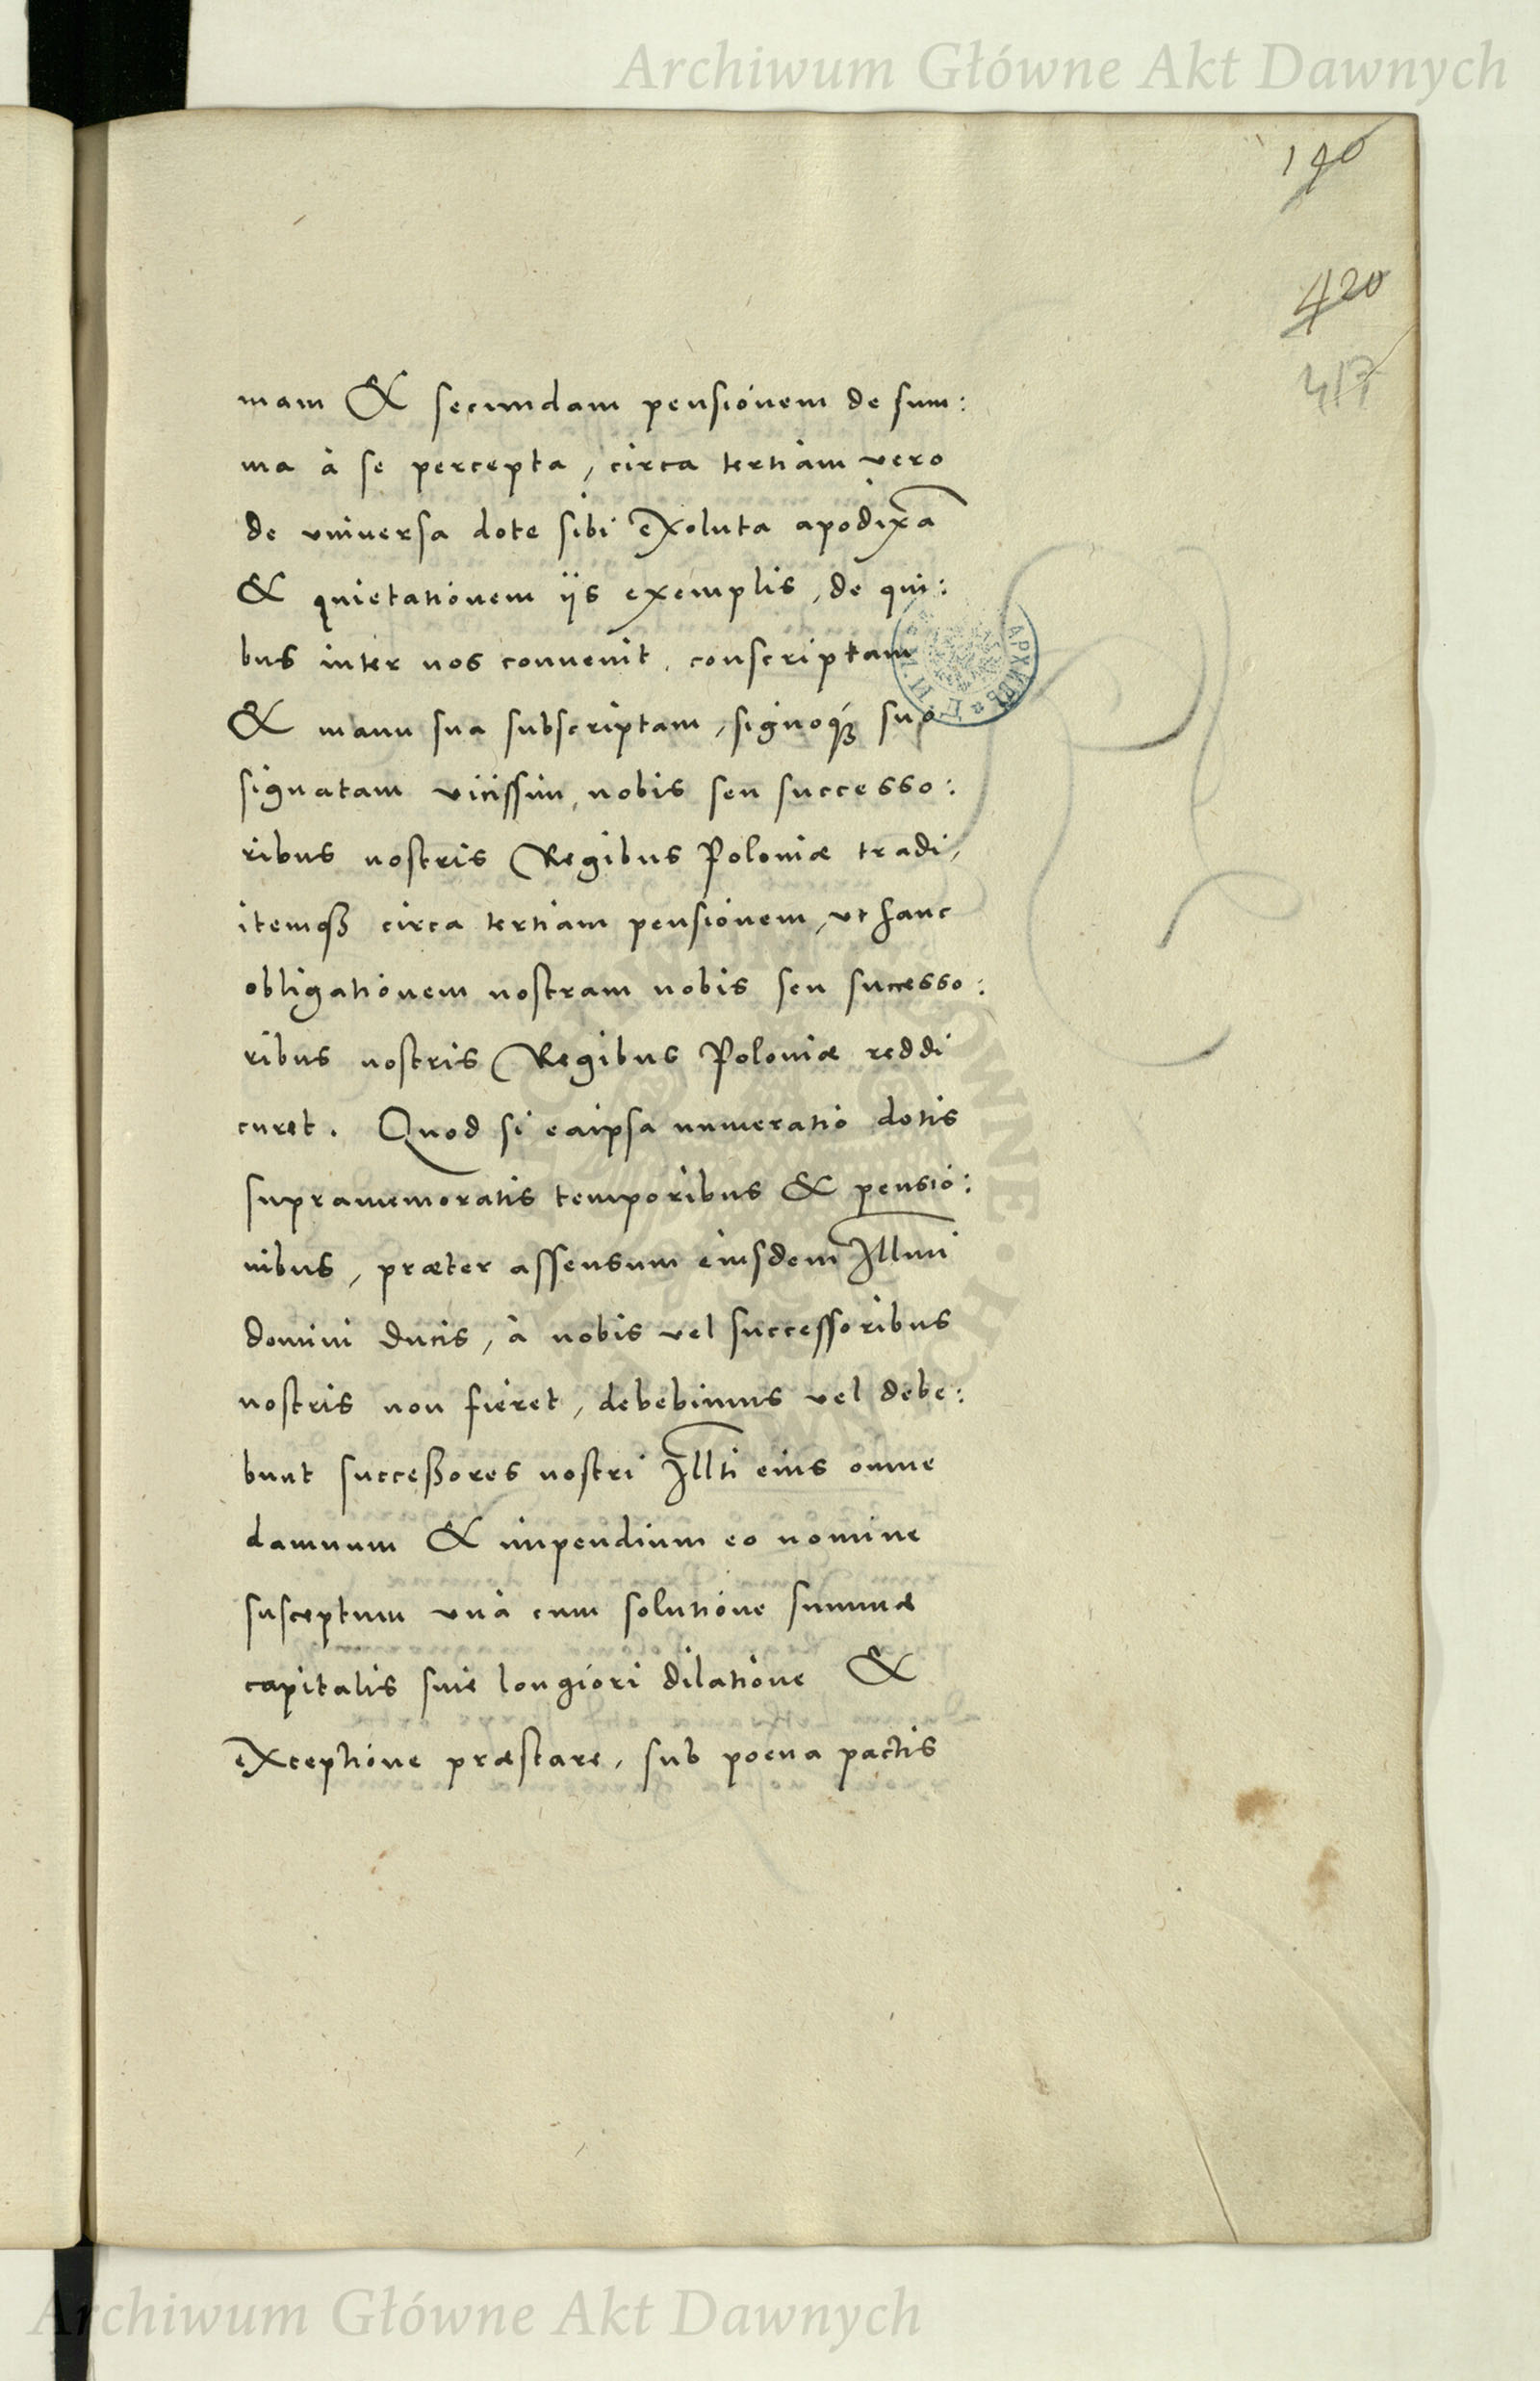 Archiwum Główne Akt Dawnych
190
420
417
mam & secundam pensionem de sum:
ma à se percepta, circa tertiam vero
de vniuersa dote sibi exoluta apodixā
& quietationem ijs exemplis, de qui:
bus inter nos conuenit, conscriptam
& manu sua subscriptam, signoq́ꝫ suo
signatam vicissim, nobis seu successo:
ribus nostris Regibus Poloniæ tradi,
itemqꝫ circa tertiam pensionem, vt hanc
obligationem nostram nobis seu successo:
ribus nostris Regibus Poloniæ reddi
curet. Quod si eaipsa numeratio dotis
supramemoratis temporibus & pensio:
nibus, præter assensum eiusdem Illmi
domini ducis, à nobis vel successoribus
nostris non fieret, debebimus vel debe:
bunt succeßores nostri Illti eius omne
damnum & impendium eo nomine
susceptum vnà cum solutione summæ
capitalis sine longiori dilatione &
exceptione præstare, sub poena pactis
Archiwum Główne Akt Dawnych